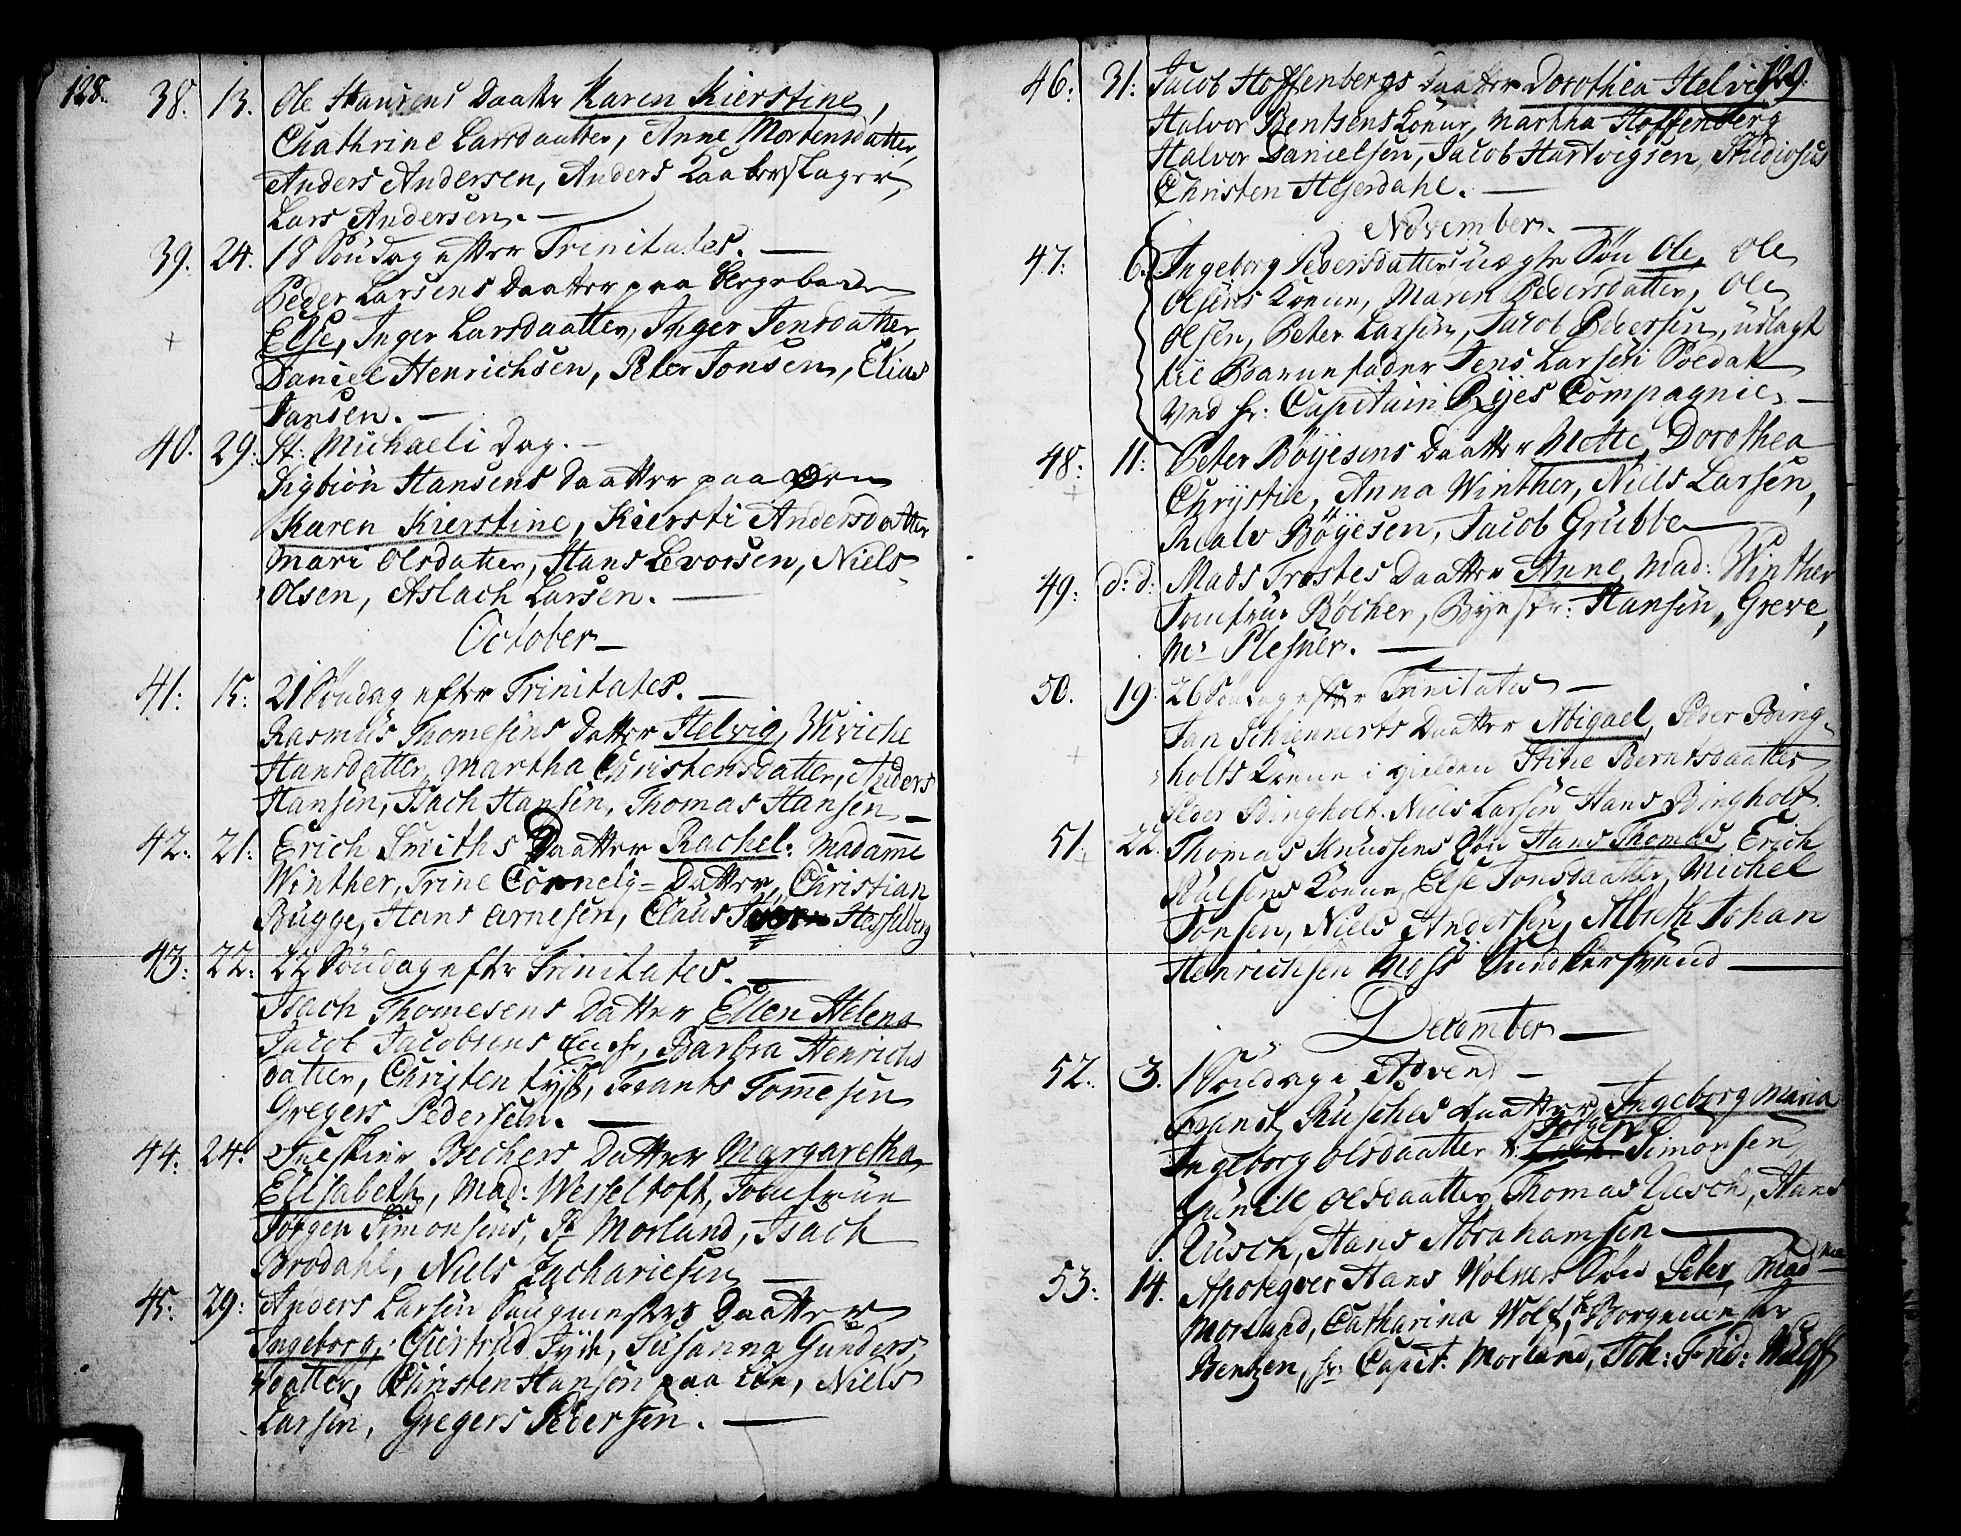 128.
38. 13. Ole Hansens Daatter Karen Kierstine,
Chathrine Larsdaatter, Anne Mortensdatter,
Anders Andersen, Anders Kaaberslager,
Lars Andersen. —
39. 24. 18 Søndag efter Trinitates. —
Peder Larsens Daatter paa
Else, Inger Larsdaatter, Inger Jensdatter,
Daniel Henrichsen, Peter Jonsen, Elias
Jansen. —
40. 29: St: Michaeli Dag. —
Sigbiön Hansens Daatter paa
Karen Kierstine, Kiersti Andersdatter
Mari Olsdatter, Hans Levorsen, Niels
Olsen, Aslach Larsen. —
October —
41: 15: 21 Søndag efter Trinitates. —
Rasmus Thomesens Datter Helvig, Wiviche
Hansdatter, Martha Christensdatter, Anders
Hansen, Isach Hansen, Thomas Hansen —
42: 21: Erich Smiths Daatter Rachel: Madamme
Winther, Trine Cornelij = Datter, Christian
Bugge, Hans Arnesen, Claus Hesselberg
43: 22: 22 Søndag efter Trinitates. —
Isach Thomesens Datter Ellen Helena
Jacob Jacobsens Barbra Henrichs
datter, Christen Frants Tommesen
Gregers Pedersen. —
44: 24: Bechers Datter Margaretha
Elisabeth, Mad: Wesseltoft, Jomfrue
Jørgen Simonsens, Sr Morland, Isach
Brodahl, Niels Zachariesen —
45: 29: Anders Larsen Daatter
Ingeborg, Giertrud Susanna Gunders
daatter, Christen Hansen paa Lie, Niels
Larsen, Gregers Pedersen. —
129.
46: 31: Jacob Hoffenbergs Daatter Dorothea Helvig
Halvor Bentsens Konne, Martha Hoffenberg
Halvor Danielsen, Jacob Hartvigsen, Studiosus
Christen Heyerdahl. —
November. —
47: 6. Ingeborg Pedersdatters uægte Søn Ole, Ole
Olsens Konne, Maren Pedersdatter, Ole
Olsen, Peter Larsen, Jacob Pedersen, udlagt
til Barnefader Jens Larsen Soldat
ved Hr: Capitain Ryes Compagnie. —
48. 11: Peter Böyesens Daatter Mette, Dorothea
Chrystie, Anna Winther, Niels Larsen,
Realv Böyesen, Jacob Grubbe
49: d: d: Mads Trostes Daatter Anne, Mad: Winther
Jomfrue Böcher, Hansen, Greve,
Mr Plesner. —
50. 19: 26 Søndag efter Trinitates —
Jan Schiennerts Daatter Abigael, Peder Bing-
holts Konne i Stine Berntsdaatter
Peder Bingholt. Niels Larsen Hans Bingholt.
51. 22. Thomas Knudsens Søn Hans Thomas, Erich
Konne, Else Jonsdaatter, Michel
Jonsen, Niels Andersen, Johan
Henrichsen
December —
52: 3. 1 Søndag i Advend —
Frandt Rusches Daatter Ingeborg Maria
Ingeborg Olsdaatter Jørgen Simonsen
Gunild Olsdaatter, Thomas Rusch, Hans
Rusch, Hans Abrahamsen
53: 14. Apoteqver Hans Wolners Søn Peter, Madme
Morland, Catharina Wolf, Hr Borgemester
Bentzen, Hr: Capit: Morland, Joh: Frid: Wulff